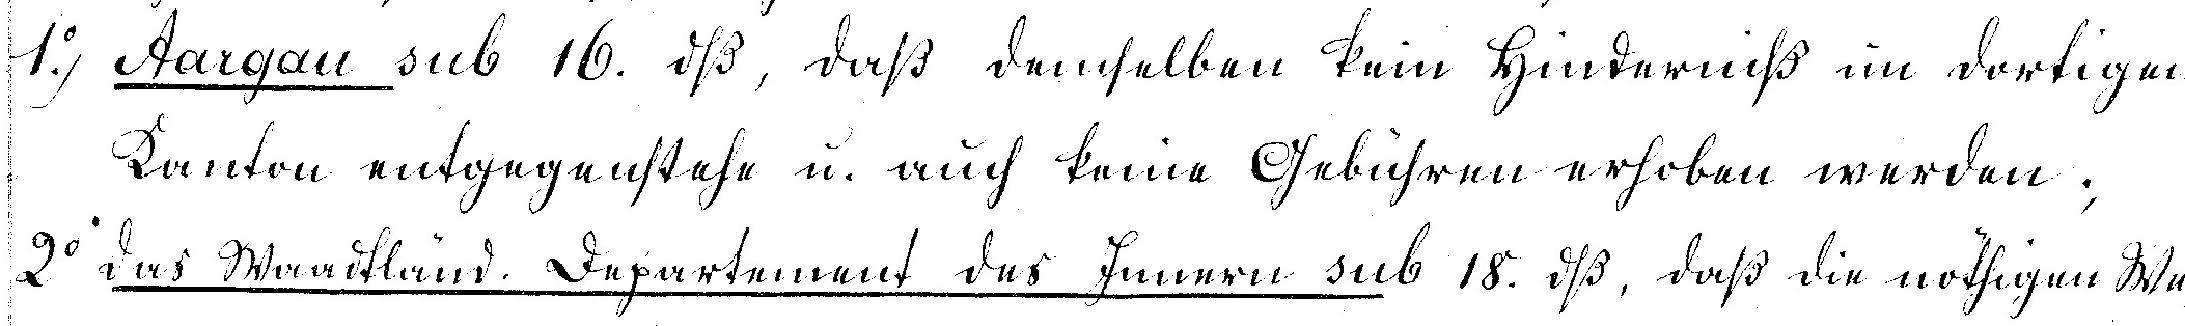 1.º) Aargau sub 16. dß, daß demselben kein Hinderniß im dortigen
Kanton entgegenstehe u. auch keine Gebühren erhoben werden;
2º das Waadtländ. Departement des Innern sub 18. dß, daß die nöthigen We